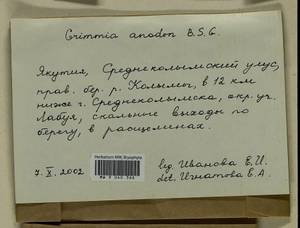 Grimmia anodon B.S.G.
Якутия, Среднеколымский улус,
прав. бер. р. Колымы, в 12 км
ниже г. Среднеколымска, окр. уч.
Лабуя, скальные выходы по
берегу, в расщелинах.
7.X.2002
Herbarium MW, Bryophyta
leg. Иванова Е.И.
det. Игнатова Е.А.